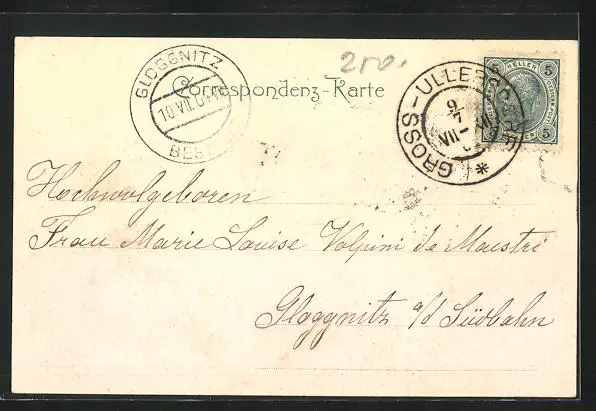 GLOGGNITZ
10.VII.01
BES
250.
Correspondenz-Karte
GROSS-ULLERSDORF
HELLER
5 5
5 5
Hochwolgeboren
Frau Marie Louise Volpini de Maestri
Gloggnitz a/d Südbahn